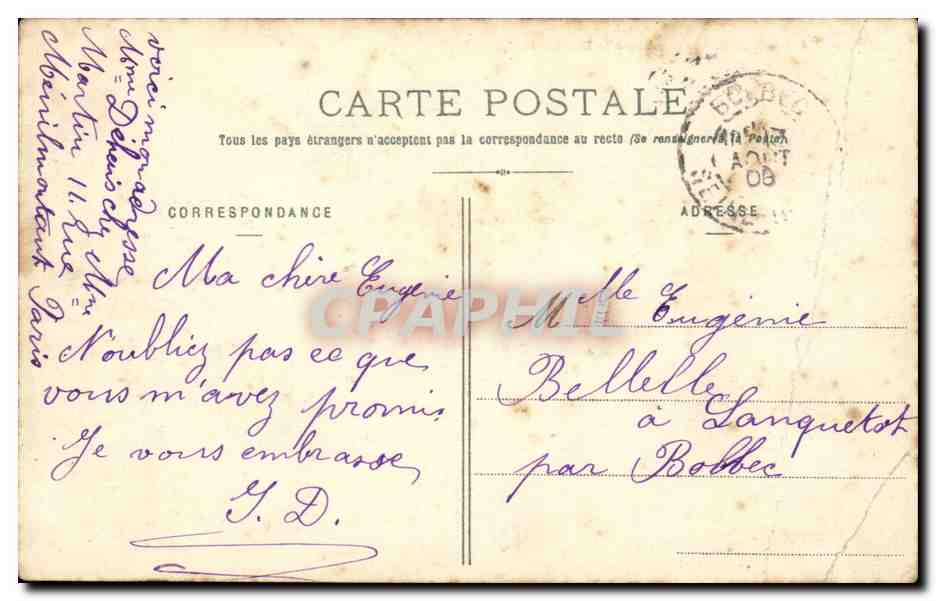 CARTE POSTALE
Tous les pays étrangers n'acceptent pas la correspondance au recto (Se renseigner à la Poste)
CORRESPONDANCE
ADRESSE
BOLBEC
AOUT
voici mon adresse
Mme
Martin 11. rue
Ménilmontant Paris
Ma chère Eugénie
N'oubliez pas ce que
vous m'avez promis
Je vous embrasse
Y. D.
Mlle Eugénie
Bellelle
à Lanquetot
par Bolbec
CPAPHIL